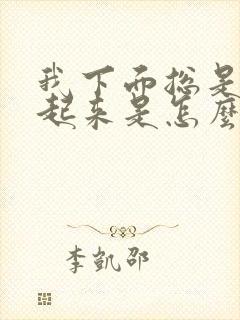 我下面总是
起来是怎麼
李凱邵